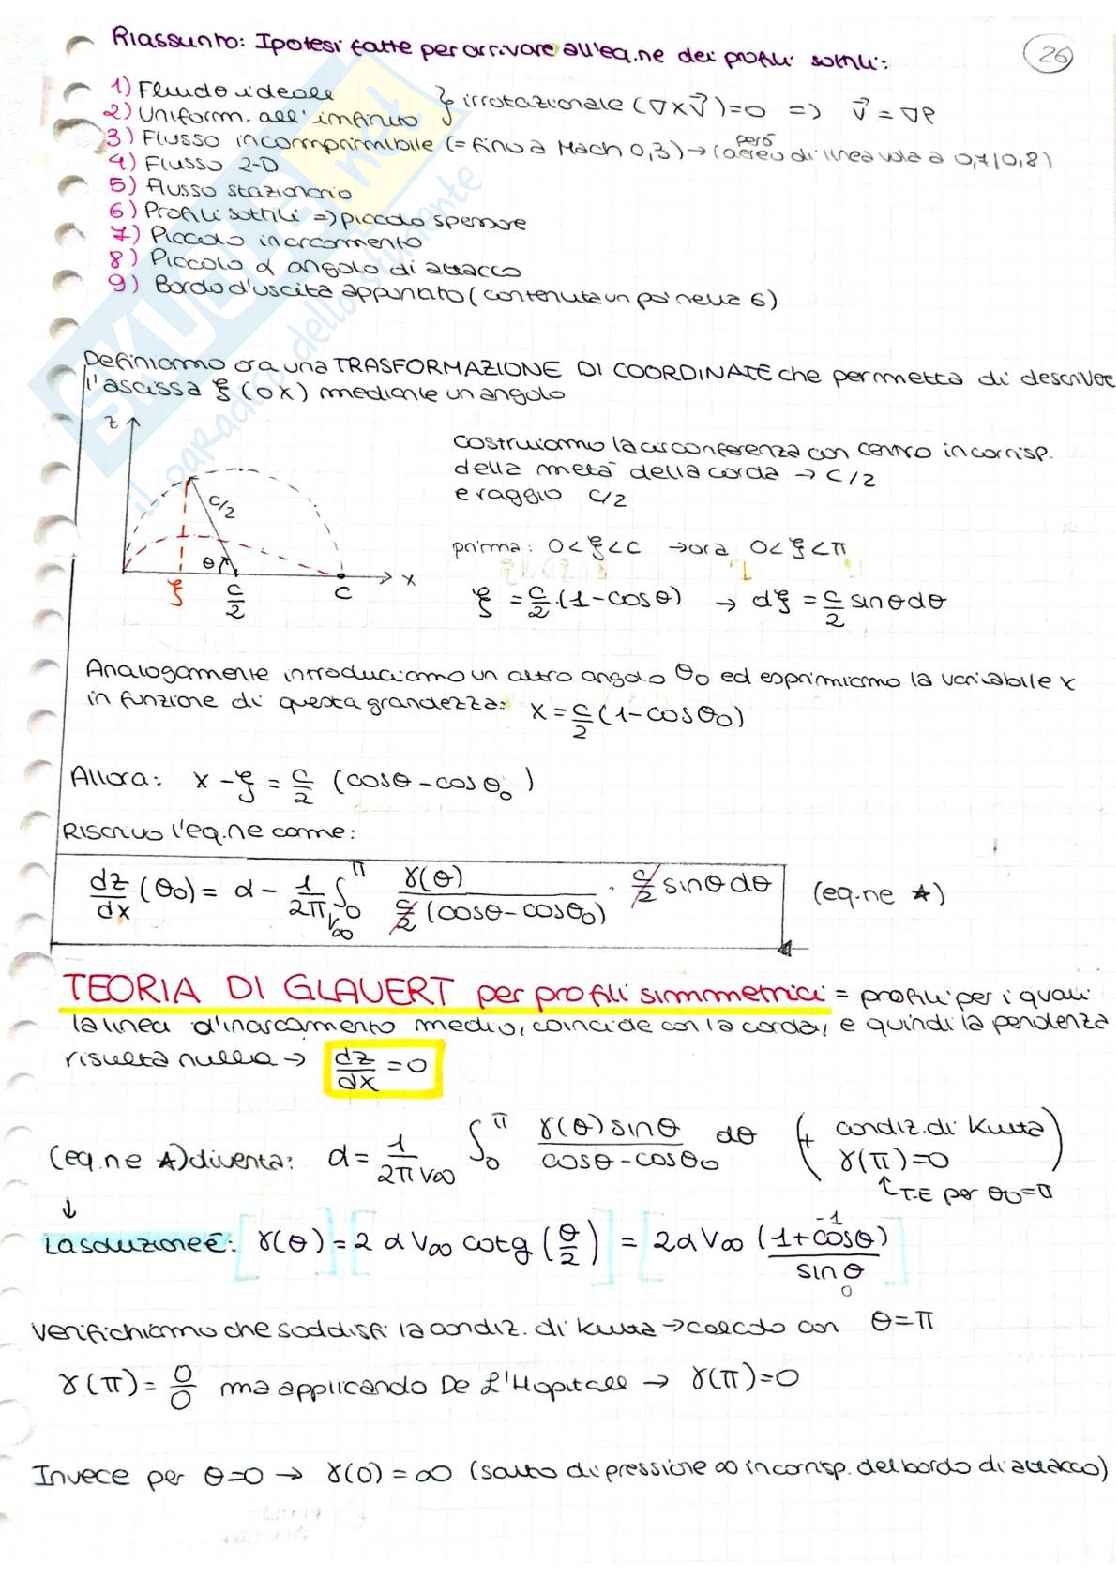 Riassunto: Ipotesi fatte per arrivare all'eq.ne dei profili sottili:
26
1) Fluido ideale
2) Uniform. all'infinito } irrotazionale (∇×V⃗)=0 => V⃗ = ∇φ
3) Flusso incomprimibile (= fino a Mach 0,3) → (però aereo di linea vola a 0,7/0,8)
4) Flusso 2-D
5) flusso stazionario
6) Profili sottili => piccolo spessore
7) Piccolo inarcamento
8) Piccolo α angolo di attacco
9) Bordo d'uscita appuntato (contenuta un po' nella 6)
Definiamo ora una TRASFORMAZIONE DI COORDINATE che permetta di descrivere
l'ascissa ξ (o x) mediante un angolo
z
c/2
θ
ξ
c/2
c
x
costruiamo la circonferenza con centro in corrisp.
della metà della corda → c/2
e raggio c/2
prima: 0<ξ<c → ora 0<ξ<π
ξ = c/2 · (1-cosθ) → dξ = c/2 sinθdθ
Analogamente introduciamo un altro angolo θ₀ ed esprimiamo la variabile x
in funzione di questa grandezza: x = c/2 (1-cosθ₀)
Allora: x - ξ = c/2 (cosθ - cosθ₀)
Riscrivo l'eq.ne come:
dz/dx (θ₀) = α - 1/2πV∞ ∫₀^π γ(θ) / c/2 (cosθ-cosθ₀) · c/2 sinθdθ (eq.ne ★)
TEORIA DI GLAUERT per profili simmetrici = profili per i quali
la linea d'inarcamento medio, coincide con la corda, e quindi la pendenza
risulta nulla → dz/dx = 0
(eq.ne ★) diventa: α = 1/2πV∞ ∫₀^π γ(θ) sinθ / cosθ-cosθ₀ dθ (+ condiz. di Kutta γ(π)=0)
↑ T.E per θ₀=π
↓
La soluzione è: γ(θ) = 2 α V∞ cotg (θ/2) = 2α V∞ (1+cosθ)/sinθ
-1
0
Verifichiamo che soddisfi la condiz. di Kutta → calcolo con θ=π
γ(π) = 0/0 ma applicando De L'Hopitall → γ(π)=0
Invece per θ=0 → γ(0) = ∞ (salto di pressione ∞ in corrisp. del bordo di attacco)
SKUOLA.net
il paradiso dello studente